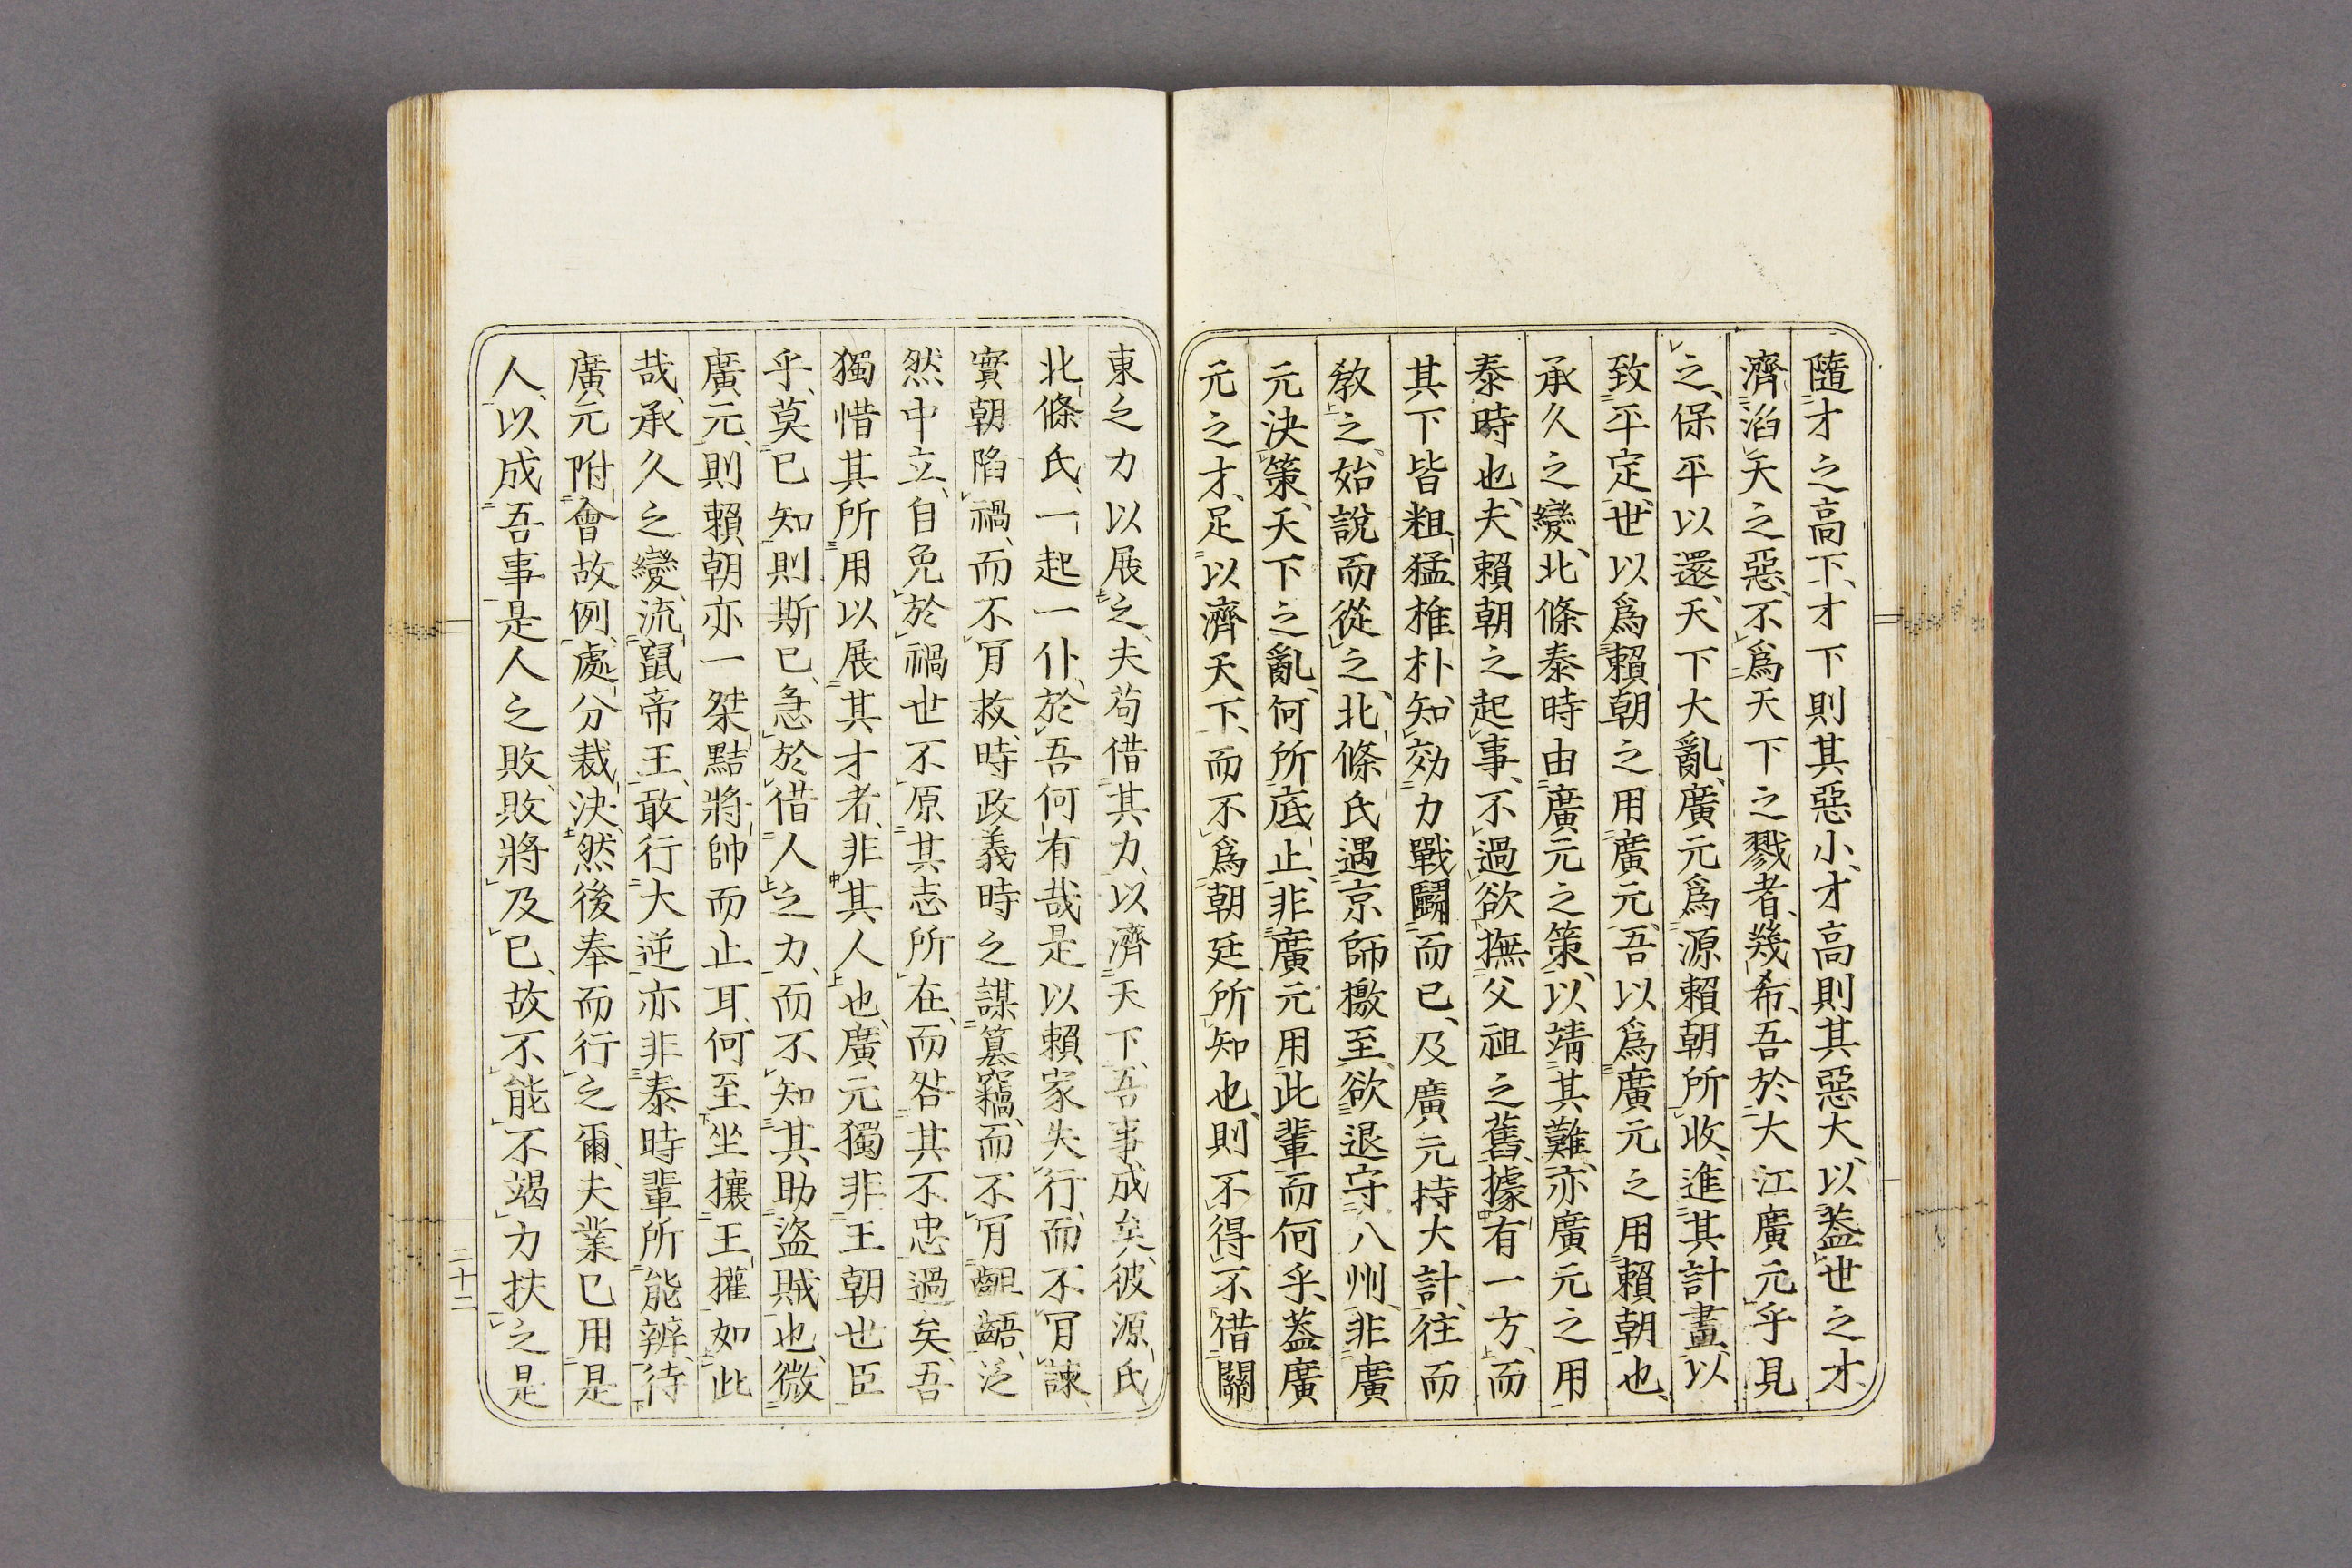 隨才之高下、才下則其惡小、才高則其惡大、以蓋世之才、
濟滔天之惡、不爲天下之戮者、幾希、吾於大江廣元乎見
之、保平以還、天下大亂、廣元爲源賴朝所收、進其計畫、以
致平定、世以爲賴朝之用廣元、吾以爲廣元之用賴朝也、
承久之變、北條泰時由廣元之策、以靖其難、亦廣元之用
泰時也、夫賴朝之起事、不過欲撫父祖之舊、據有一方、而
其下皆粗猛椎朴、知効力戰鬪而已、及廣元持大計、往而
教之、始說而從之、北條氏遇京師檄至、欲退守八州、非廣
元決策、天下之亂、何所底止、非廣元用此輩而何乎、蓋廣
元之才、足以濟天下、而不爲朝廷所知也、則不得不借關
東之力以展之、夫苟借其力、以濟天下、吾事成矣、彼源氏
北條氏、一起一仆、於吾何有哉是以賴家失行、而不肎諫、
實朝陷禍、而不肎救、時政義時之謀簒竊、而不肎齟齬、泛
然中立、自免於禍世不原其志所在、而咎其不忠過矣、吾
獨惜其所用以展其才者、非其人也、廣元獨非王朝世臣
乎、莫已知則斯已、急於借人之力、而不知其助盜賊也、微
廣元、則賴朝亦一桀黠將帥而止耳、何至坐攘王權如此
哉、承久之變、流竄帝王、敢行大逆、亦非泰時輩所能辨、待
廣元附會故例、處分裁決、然後奉而行之爾、夫業已用是
人、以成吾事、是人之敗、敗將及已、故不能不竭力扶之是
二十二